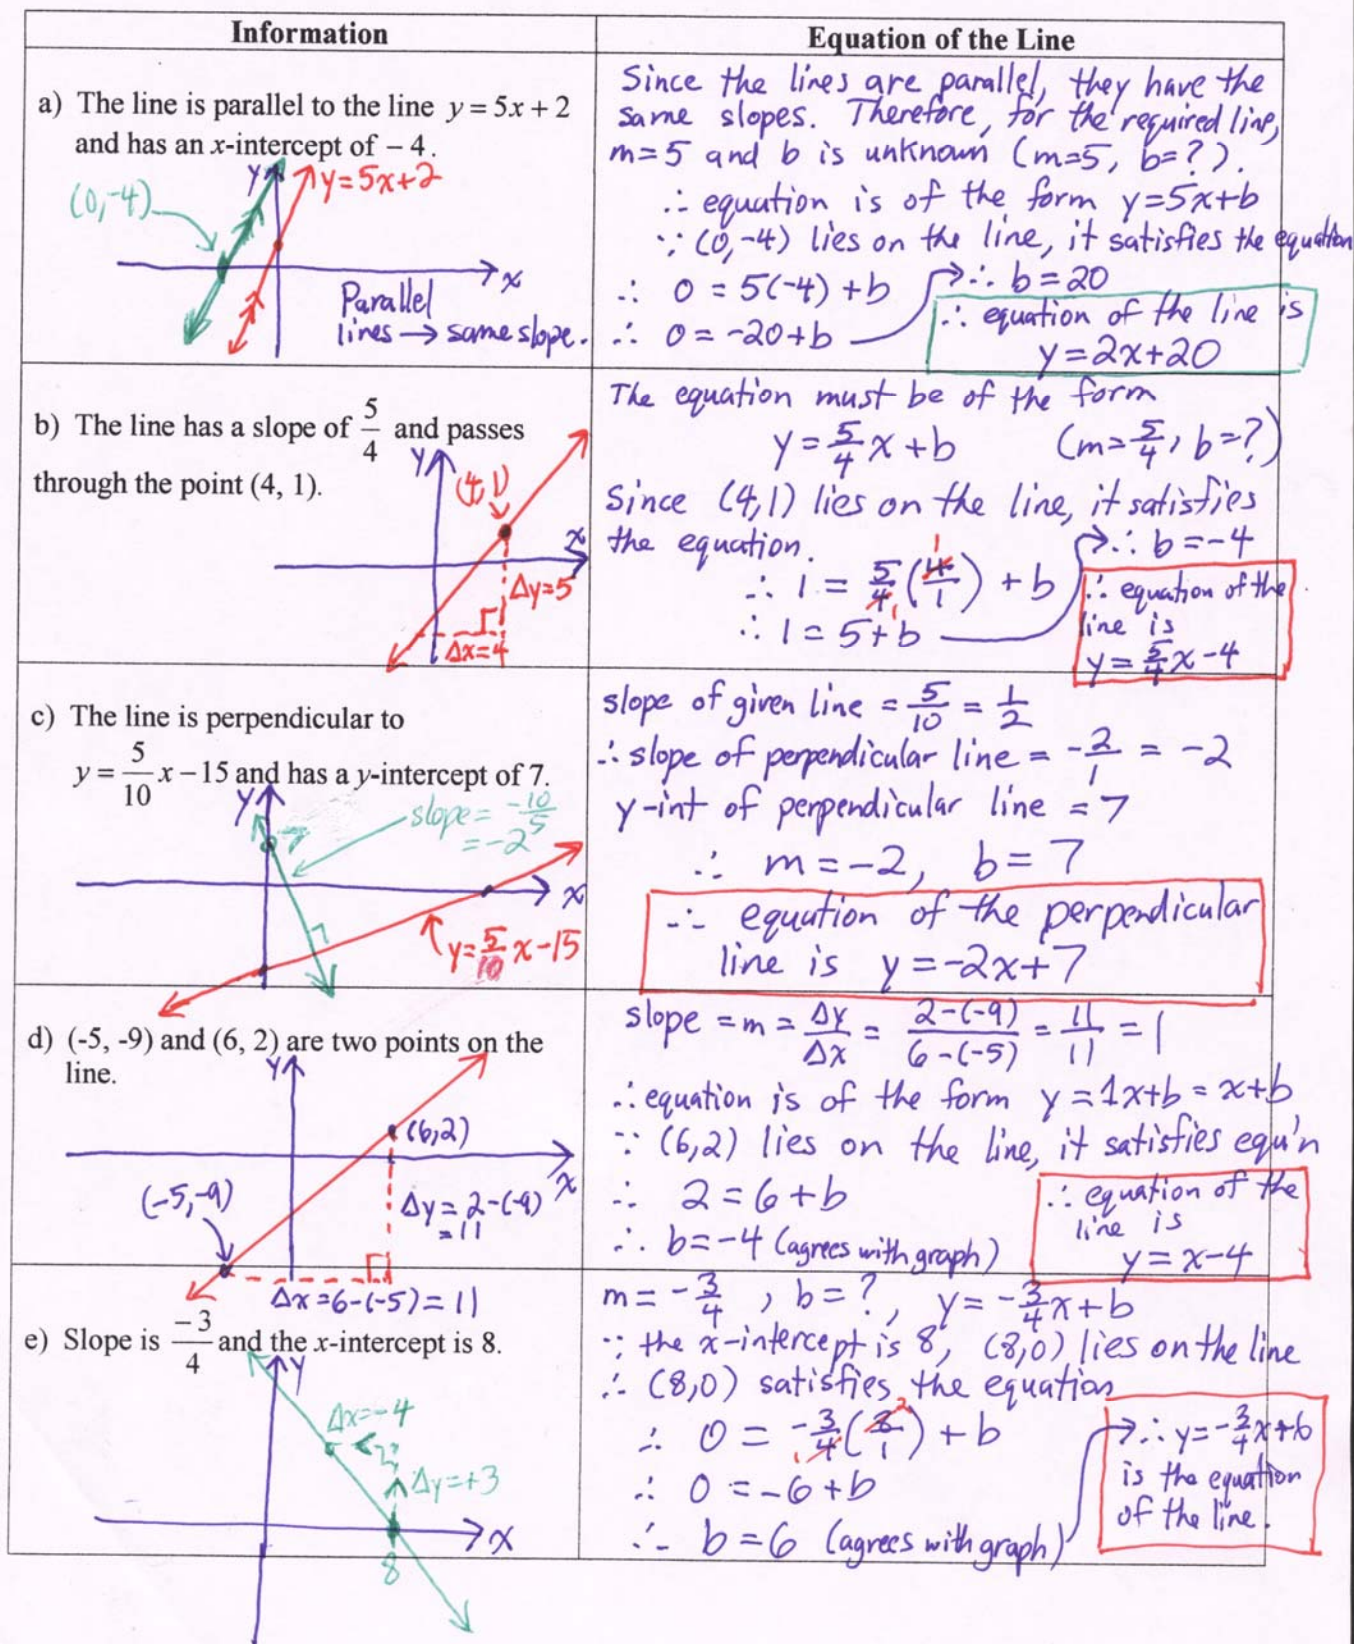 Information
Equation of the Line
a) The line is parallel to the line y = 5x + 2
and has an x-intercept of – 4.
(0,-4)
y
y=5x+2
x
Parallel
lines → same slope.
Since the lines are parallel, they have the
same slopes. Therefore, for the required line,
m=5 and b is unknown (m=5, b=?).
∴ equation is of the form y=5x+b
∵ (0,-4) lies on the line, it satisfies the equation
∴ 0 = 5(-4) + b
∴ 0 = -20+b
∴ b = 20
∴ equation of the line is
y=2x+20
b) The line has a slope of 5/4 and passes
through the point (4, 1).
y
(4,1)
x
Δy=5
Δx=4
The equation must be of the form
y = 5/4 x + b (m=5/4, b=?)
Since (4,1) lies on the line, it satisfies
the equation.
∴ 1 = 5/4 (4/1) + b
1
1
∴ 1 = 5+b
∴ b = -4
∴ equation of the
line is
y = 5/4 x - 4
c) The line is perpendicular to
y = 5/10 x – 15 and has a y-intercept of 7.
y
7
slope = -10/5
= -2
x
y = 5/10 x - 15
slope of given line = 5/10 = 1/2
∴ slope of perpendicular line = -2/1 = -2
y-int of perpendicular line = 7
∴ m = -2, b = 7
∴ equation of the perpendicular
line is y = -2x+7
d) (-5, -9) and (6, 2) are two points on the
line.
y
(6,2)
x
(-5,-9)
Δy = 2-(-9)
= 11
Δx = 6-(-5) = 11
slope = m = Δy/Δx = 2-(-9)/6-(-5) = 11/11 = 1
∴ equation is of the form y = 1x+b = x+b
∵ (6,2) lies on the line, it satisfies equ'n
∴ 2 = 6+b
∴ b = -4 (agrees with graph)
∴ equation of the
line is
y = x-4
e) Slope is -3/4 and the x-intercept is 8.
y
Δx=-4
Δy=+3
x
8
m = -3/4 , b = ?, y = -3/4 x + b
∵ the x-intercept is 8, (8,0) lies on the line
∴ (8,0) satisfies the equation
∴ 0 = -3/4 (8/1) + b
2
1
∴ 0 = -6+b
∴ b = 6 (agrees with graph)
∴ y = -3/4 x + 6
is the equation
of the line.